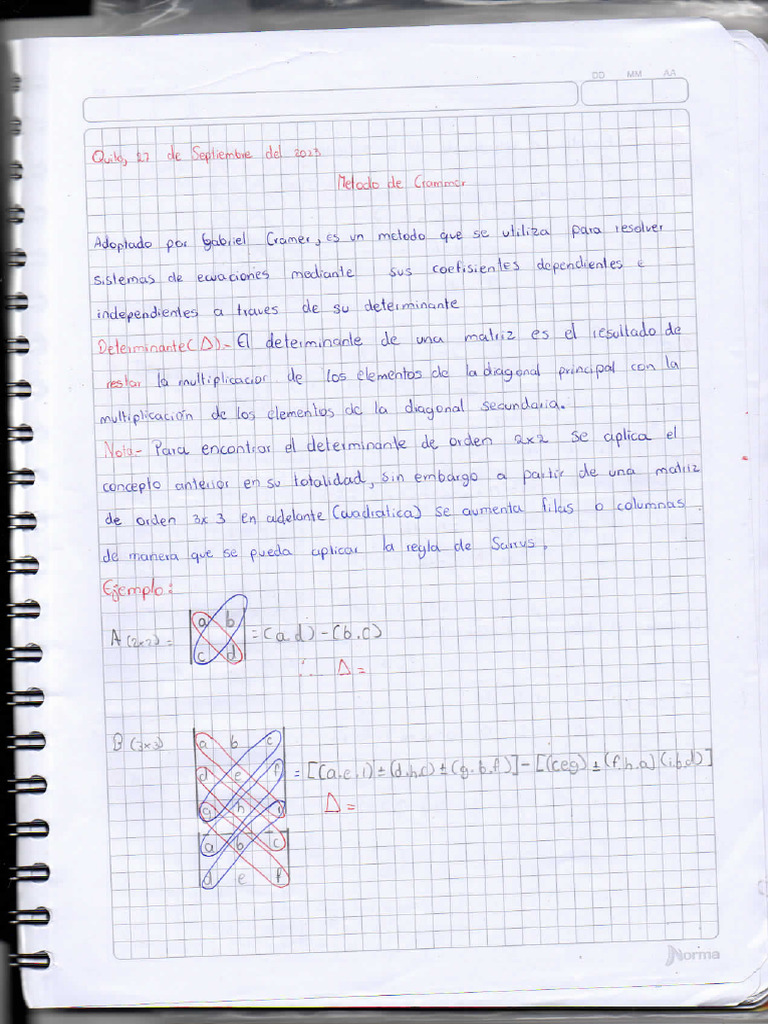 DD MM AA
Quito, 27 de Septiembre del 2023
Metodo de Crammer
Adoptado por Gabriel Cramer, es un metodo que se utiliza para resolver
sistemas de ecuaciones mediante sus coefisientes dependientes e
independientes a traves de su determinante
Determinante(Δ).- El determinante de una matriz es el resultado de
restar la multiplicacion de los elementos de la diagonal principal con la
multiplicación de los elementos de la diagonal secundaria.
Nota- Para encontrar el determinante de orden 2x2 se aplica el
concepto anterior en su totalidad, sin embargo a partir de una matriz
de orden 3x3 en adelante (cuadratica) se aumenta filas o columnas
de manera que se pueda aplicar la regla de Sarrus.
Ejemplo:
a b
A (2x2) = = (a.d) - (b.c)
c d
∴ Δ =
B (3x3) a b c
d e f = [(a.e.i) ± (d.h.c) ± (g.b.f)] - [(ceg) ± (f.h.a) (i.b.d)]
g h i Δ =
a b c
d e f
Norma